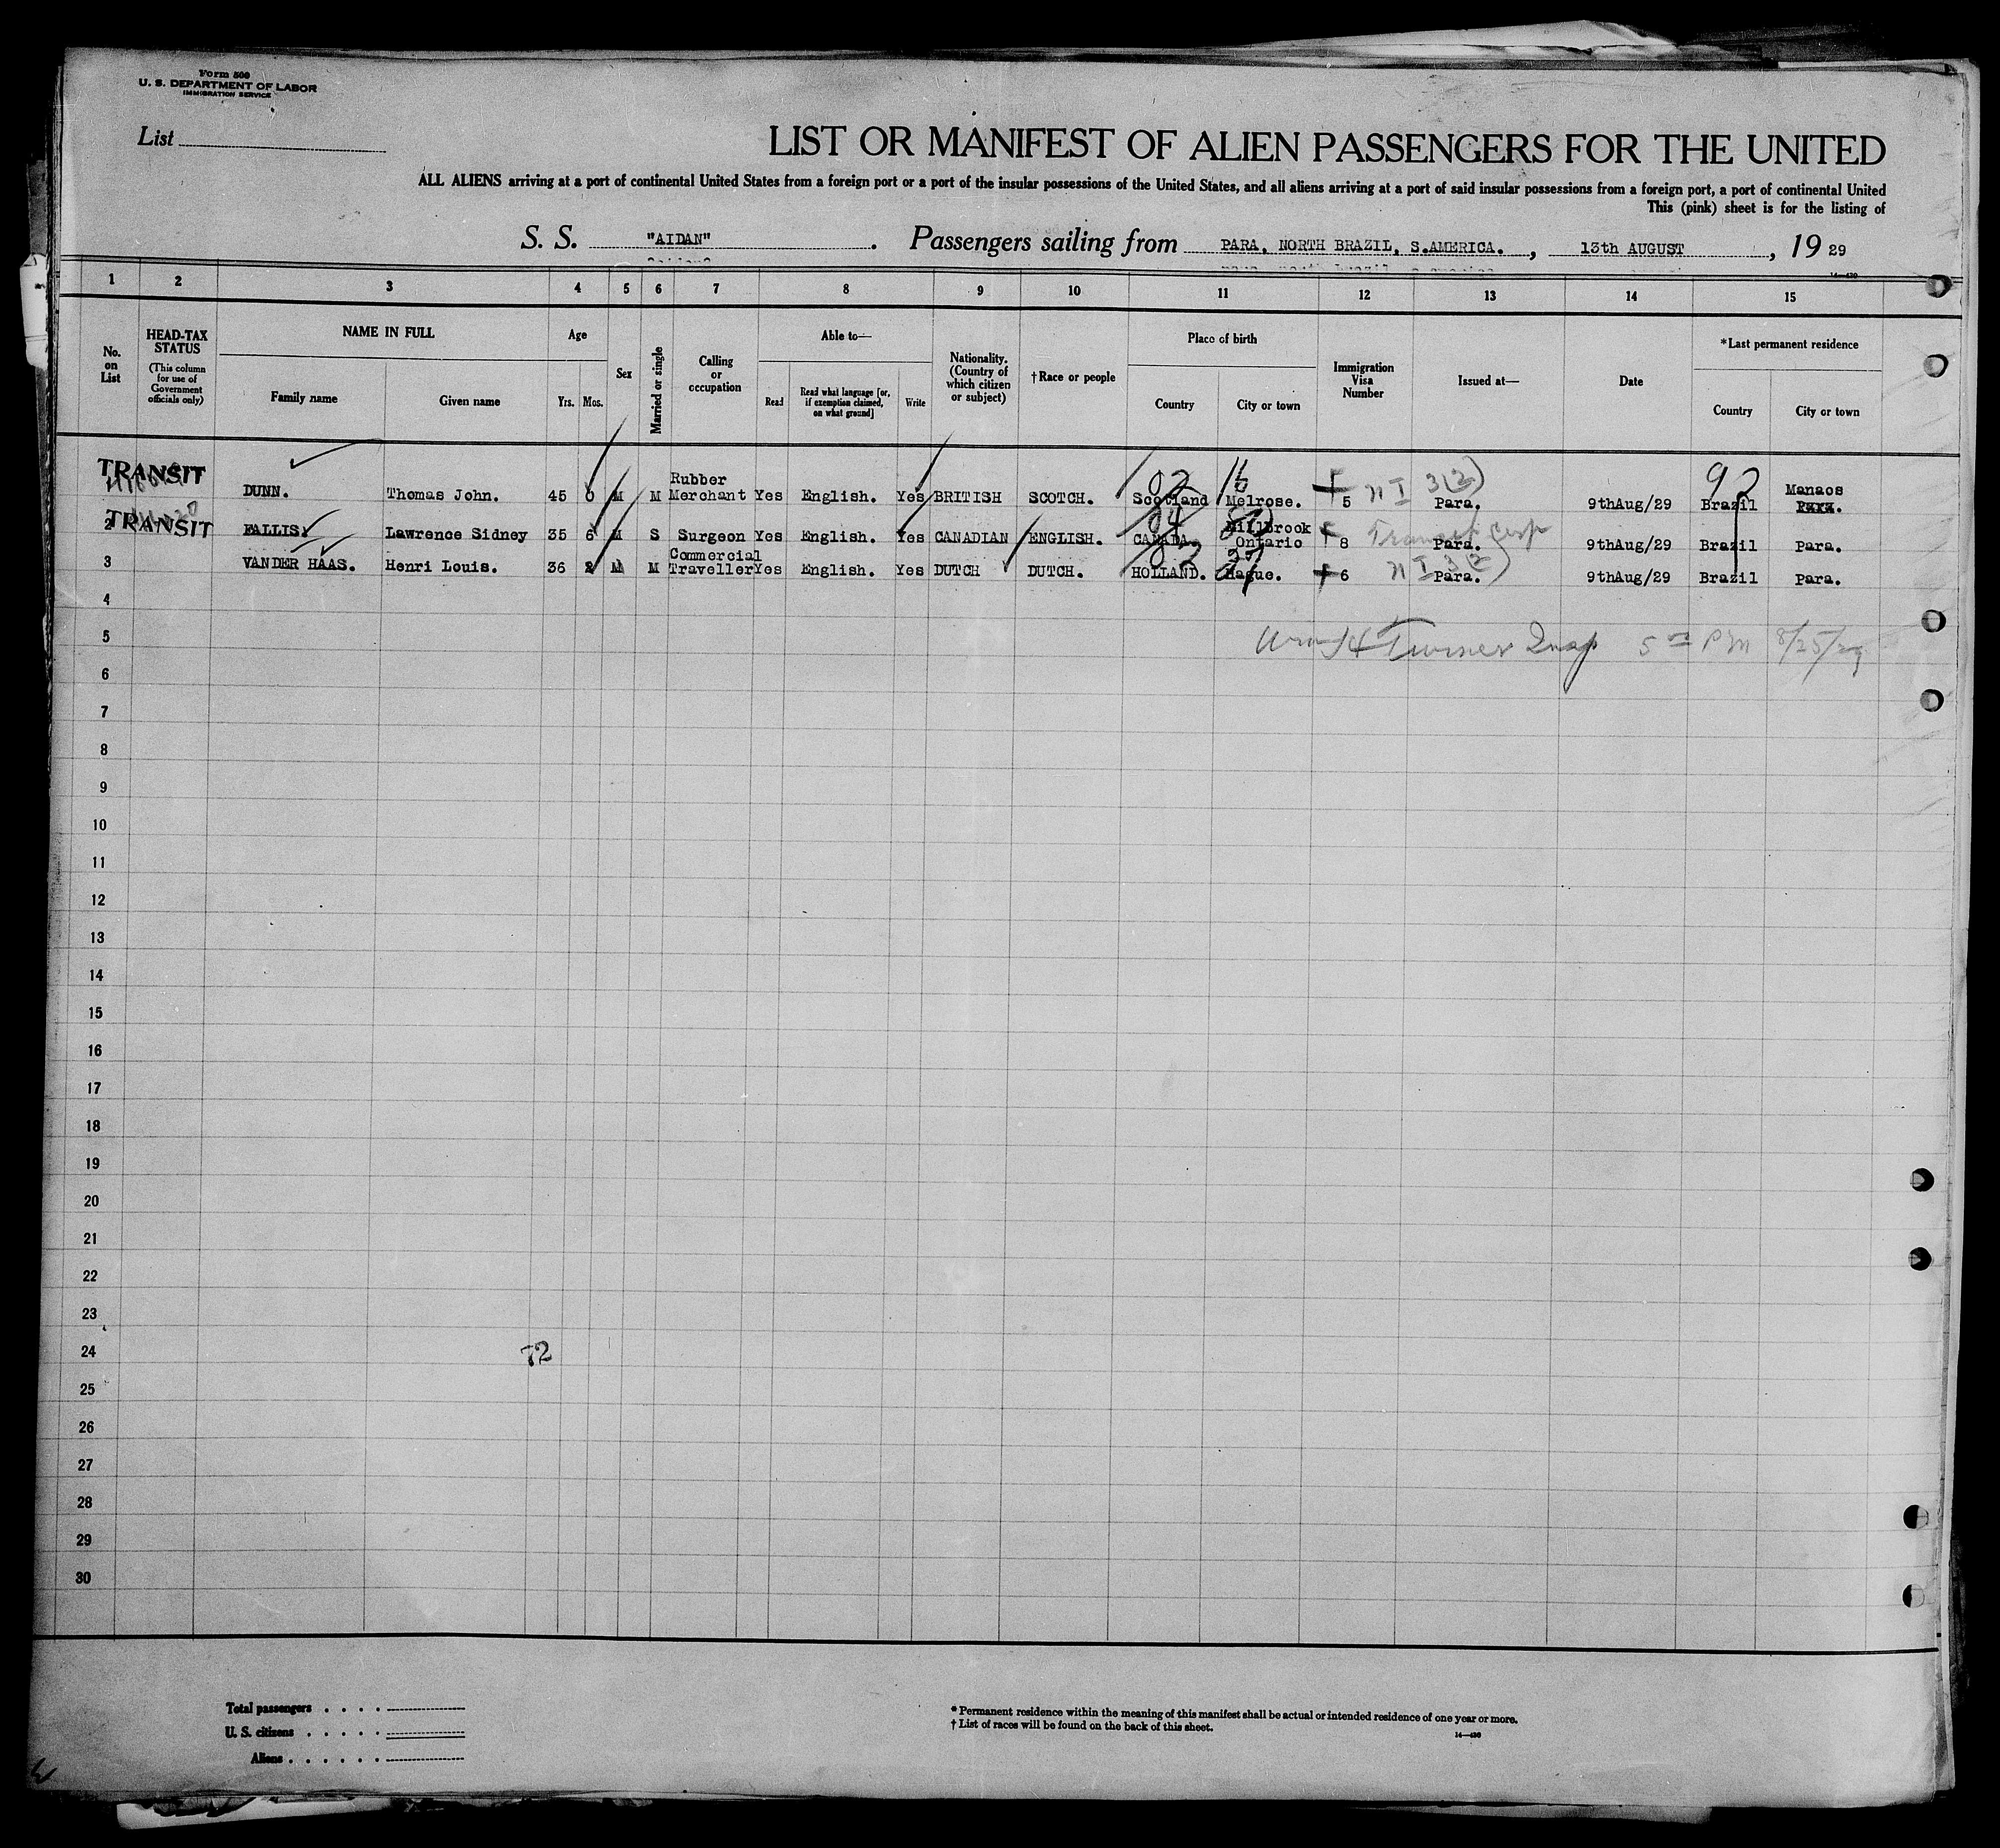 Form 500
U. S. DEPARTMENT OF LABOR
IMMIGRATION SERVICE
List
LIST OR MANIFEST OF ALIEN PASSENGERS FOR THE UNITED
ALL ALIENS arriving at a port of continental United States from a foreign port or a port of the insular possessions of the United States, and all aliens arriving at a port of said insular possessions from a foreign port, a port of continental United
This (pink) sheet is for the listing of
S. S. "AIDAN". Passengers sailing from PARA, NORTH BRAZIL, S.AMERICA., 13th AUGUST, 19 29
14—430
1 2 3 4 5 6 7 8 9 10 11 12 13 14 15
No. on List
HEAD-TAX STATUS
(This column for use of Government officials only)
NAME IN FULL
Family name
Given name
Age
Yrs. Mos.
Sex
Married or single
Calling or occupation
Able to—
Read
Read what language [or, if exemption claimed, on what ground]
Write
Nationality. (Country of which citizen or subject)
†Race or people
Place of birth
Country
City or town
Immigration Visa Number
Issued at—
Date
*Last permanent residence
Country
City or town
TRANSIT DUNN. Thomas John. 45 0 M M Rubber Merchant Yes English. Yes BRITISH SCOTCH. Scotland Melrose. 5 Para. 9thAug/29 Brazil Manaos Para.
02 16 N I 3(2) 92
2 TRANSIT FALLIS. Lawrence Sidney 35 6 M S Surgeon Yes English. Yes CANADIAN ENGLISH. CANADA. Millbrook Ontario 8 Para. 9thAug/29 Brazil Para.
04 Transit
3 VAN DER HAAS. Henri Louis. 36 2 M M Commercial Traveller Yes English. Yes DUTCH DUTCH. HOLLAND. Hague. 6 Para. 9thAug/29 Brazil Para.
N I 3(2)
4
5
Wm H Turner Insp 5 00 PM 8/25/29
6
7
8
9
10
11
12
13
14
15
16
17
18
19
20
21
22
23
24
72
25
26
27
28
29
30
Total passengers . . . .
U. S. citizens . . . . .
Aliens . . . . . .
* Permanent residence within the meaning of this manifest shall be actual or intended residence of one year or more.
† List of races will be found on the back of this sheet.
14—430